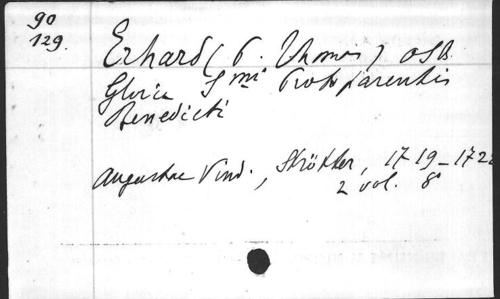 90
129.
Erhard (P. Thomas) OSB.
Gloria Smi Protoparentis
Benedicti
Augustae Vind., Strötter, 1719-1722
2 vol. 8°